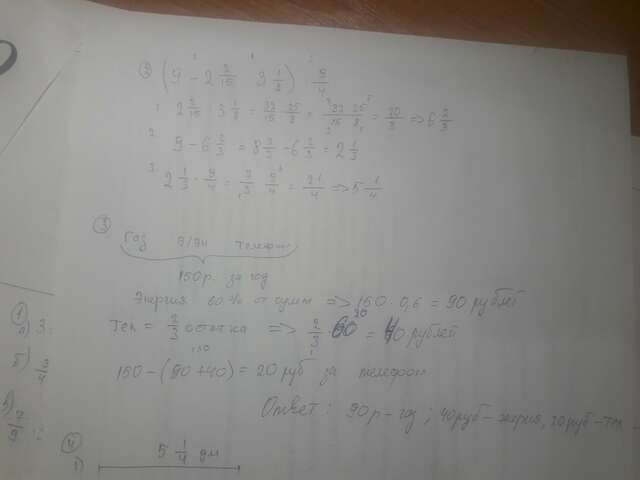 ② (9 - 2 2/15 · 3 1/8) · 9/4
1. 2 2/15 · 3 1/8 = 32/15 · 25/8 = 32/15 · 25/8 = 20/3 => 6 2/3
2. 9 - 6 2/3 = 8 3/3 - 6 2/3 = 2 1/3
3. 2 1/3 · 9/4 = 7/3 · 9/4 = 21/4 => 5 1/4
③
Газ Э/эн Телефон
150р. за год
Энергия 60% от сумм => 150 · 0,6 = 90 рублей
Тел = 2/3 остатка => 2/3 · 60 = 40 рублей
150 - (90 + 40) = 20 руб за телефон
Ответ: 90р - газ; 40руб - энергия, 20руб - тел
①
а) 3
б) 3/4
в) 7/9 :
④
1) 5 1/4 дм